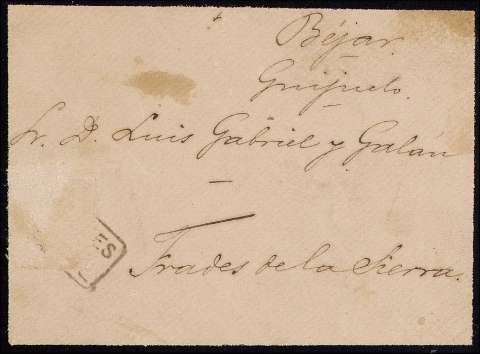 Béjar.
Guijuelo.
Sr. D. Luis Gabriel y Galán
Frades de la Sierra.
ES